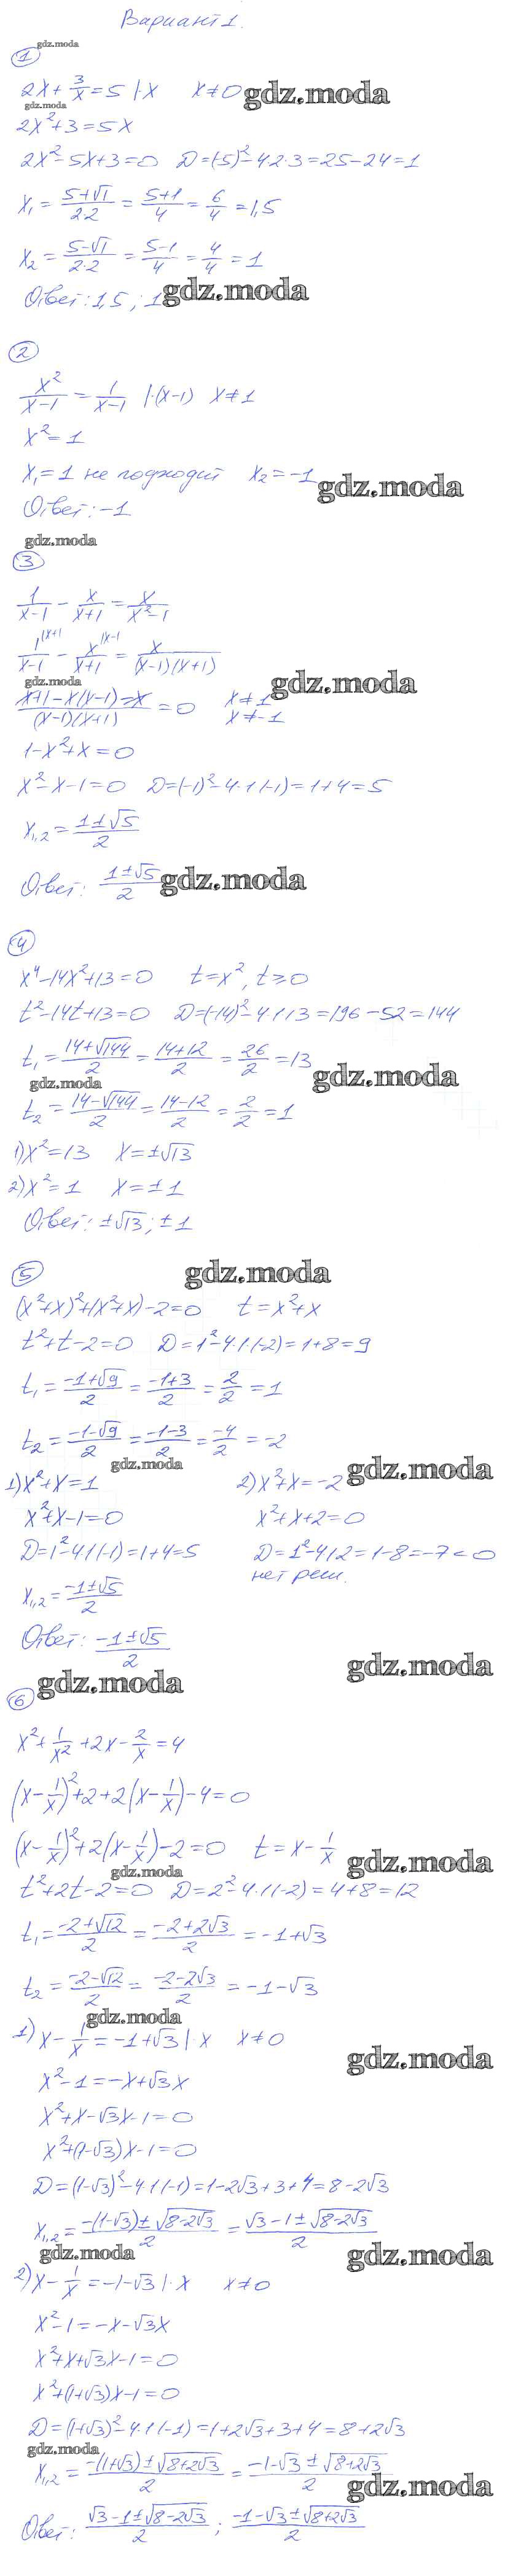 Вариант 1.
gdz.moda
1
2x + 3/x = 5 |·x   x ≠ 0 gdz.moda
gdz.moda
2x² + 3 = 5x
2x² - 5x + 3 = 0   D = (-5)² - 4·2·3 = 25 - 24 = 1
x₁ = (5+√1)/(2·2) = (5+1)/4 = 6/4 = 1,5
x₂ = (5-√1)/(2·2) = (5-1)/4 = 4/4 = 1
Ответ: 1,5; 1 gdz.moda
2
x²/(x-1) = 1/(x-1) |·(x-1)   x ≠ 1
x² = 1
x₁ = 1 не подходит   x₂ = -1 gdz.moda
Ответ: -1
gdz.moda
3
1/(x-1) - x/(x+1) = x/(x²-1)
1^{|x+1}/(x-1) - x^{|x-1}/(x+1) = x/((x-1)(x+1))
gdz.moda gdz.moda
(x+1-x(x-1)=x)/((x-1)(x+1)) = 0   x ≠ 1
x ≠ -1
1 - x² + x = 0
x² - x - 1 = 0   D = (-1)² - 4·1·(-1) = 1 + 4 = 5
x₁,₂ = (1±√5)/2
Ответ: (1±√5)/2 gdz.moda
4
x⁴ - 14x² + 13 = 0   t = x², t ≥ 0
t² - 14t + 13 = 0   D = (-14)² - 4·1·13 = 196 - 52 = 144
t₁ = (14+√144)/2 = (14+12)/2 = 26/2 = 13 gdz.moda
gdz.moda
t₂ = (14-√144)/2 = (14-12)/2 = 2/2 = 1
1) x² = 13   x = ±√13
2) x² = 1   x = ±1
Ответ: ±√13; ±1
5 gdz.moda
(x²+x)² + (x²+x) - 2 = 0   t = x² + x
t² + t - 2 = 0   D = 1² - 4·1·(-2) = 1 + 8 = 9
t₁ = (-1+√9)/2 = (-1+3)/2 = 2/2 = 1
t₂ = (-1-√9)/2 = (-1-3)/2 = -4/2 = -2
gdz.moda gdz.moda
1) x² + x = 1   2) x² + x = -2
x² + x - 1 = 0   x² + x + 2 = 0
D = 1² - 4·1·(-1) = 1 + 4 = 5   D = 1² - 4·1·2 = 1 - 8 = -7 < 0
нет реш.
x₁,₂ = (-1±√5)/2
Ответ: (-1±√5)/2
gdz.moda
6 gdz.moda
x² + 1/x² + 2x - 2/x = 4
(x - 1/x)² + 2 + 2(x - 1/x) - 4 = 0
(x - 1/x)² + 2(x - 1/x) - 2 = 0   t = x - 1/x
gdz.moda gdz.moda
t² + 2t - 2 = 0   D = 2² - 4·1·(-2) = 4 + 8 = 12
t₁ = (-2+√12)/2 = (-2+2√3)/2 = -1+√3
t₂ = (-2-√12)/2 = (-2-2√3)/2 = -1-√3
gdz.moda
1) x - 1/x = -1+√3 |·x   x ≠ 0
gdz.moda
x² - 1 = -x + √3x
x² + x - √3x - 1 = 0
x² + (1-√3)x - 1 = 0
D = (1-√3)² - 4·1·(-1) = 1 - 2√3 + 3 + 4 = 8 - 2√3
x₁,₂ = (-(1-√3) ± √(8-2√3))/2 = (√3 - 1 ± √(8-2√3))/2
gdz.moda gdz.moda
2) x - 1/x = -1-√3 |·x   x ≠ 0
x² - 1 = -x - √3x
x² + x + √3x - 1 = 0
x² + (1+√3)x - 1 = 0
D = (1+√3)² - 4·1·(-1) = 1 + 2√3 + 3 + 4 = 8 + 2√3
gdz.moda
x₁,₂ = (-(1+√3) ± √(8+2√3))/2 = (-1-√3 ± √(8+2√3))/2
gdz.moda
Ответ: (√3 - 1 ± √(8-2√3))/2; (-1-√3 ± √(8+2√3))/2